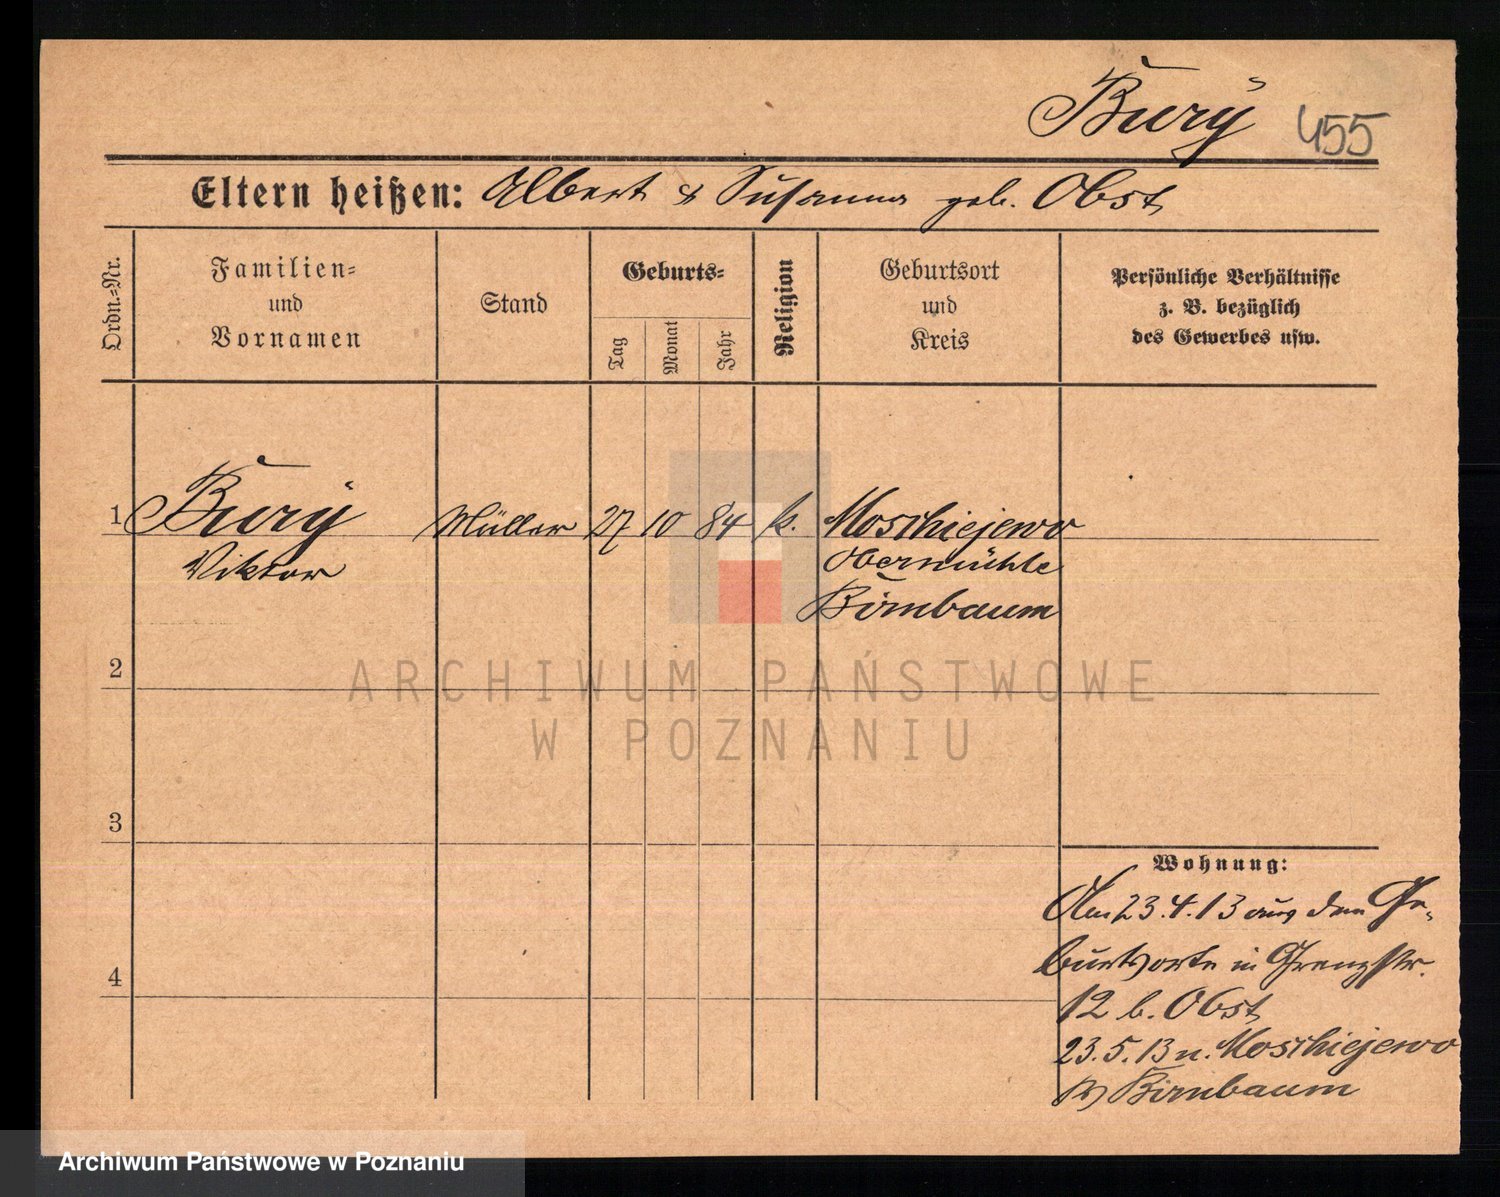 Bury 455
Eltern heißen: Albert & Susanna geb. Obst
Ordn.=Nr.
Familien=
und
Vornamen
Stand
Geburts=
Tag
Monat
Jahr
Religion
Geburtsort
und
Kreis
Persönliche Verhältnisse
z. B. bezüglich
des Gewerbes usw.
1 Bury Müller 27 10 84 k. Moschiejewo
Viktor Obermühle
Birnbaum
2
ARCHIWUM PAŃSTWOWE
W POZNANIU
3
Wohnung:
Am 23.4.13 aus dem Ge-
burtsorte in Grenzstr.
4
12 b. Obst
23.5.13 n. Moschiejewo
Birnbaum
Archiwum Państwowe w Poznaniu